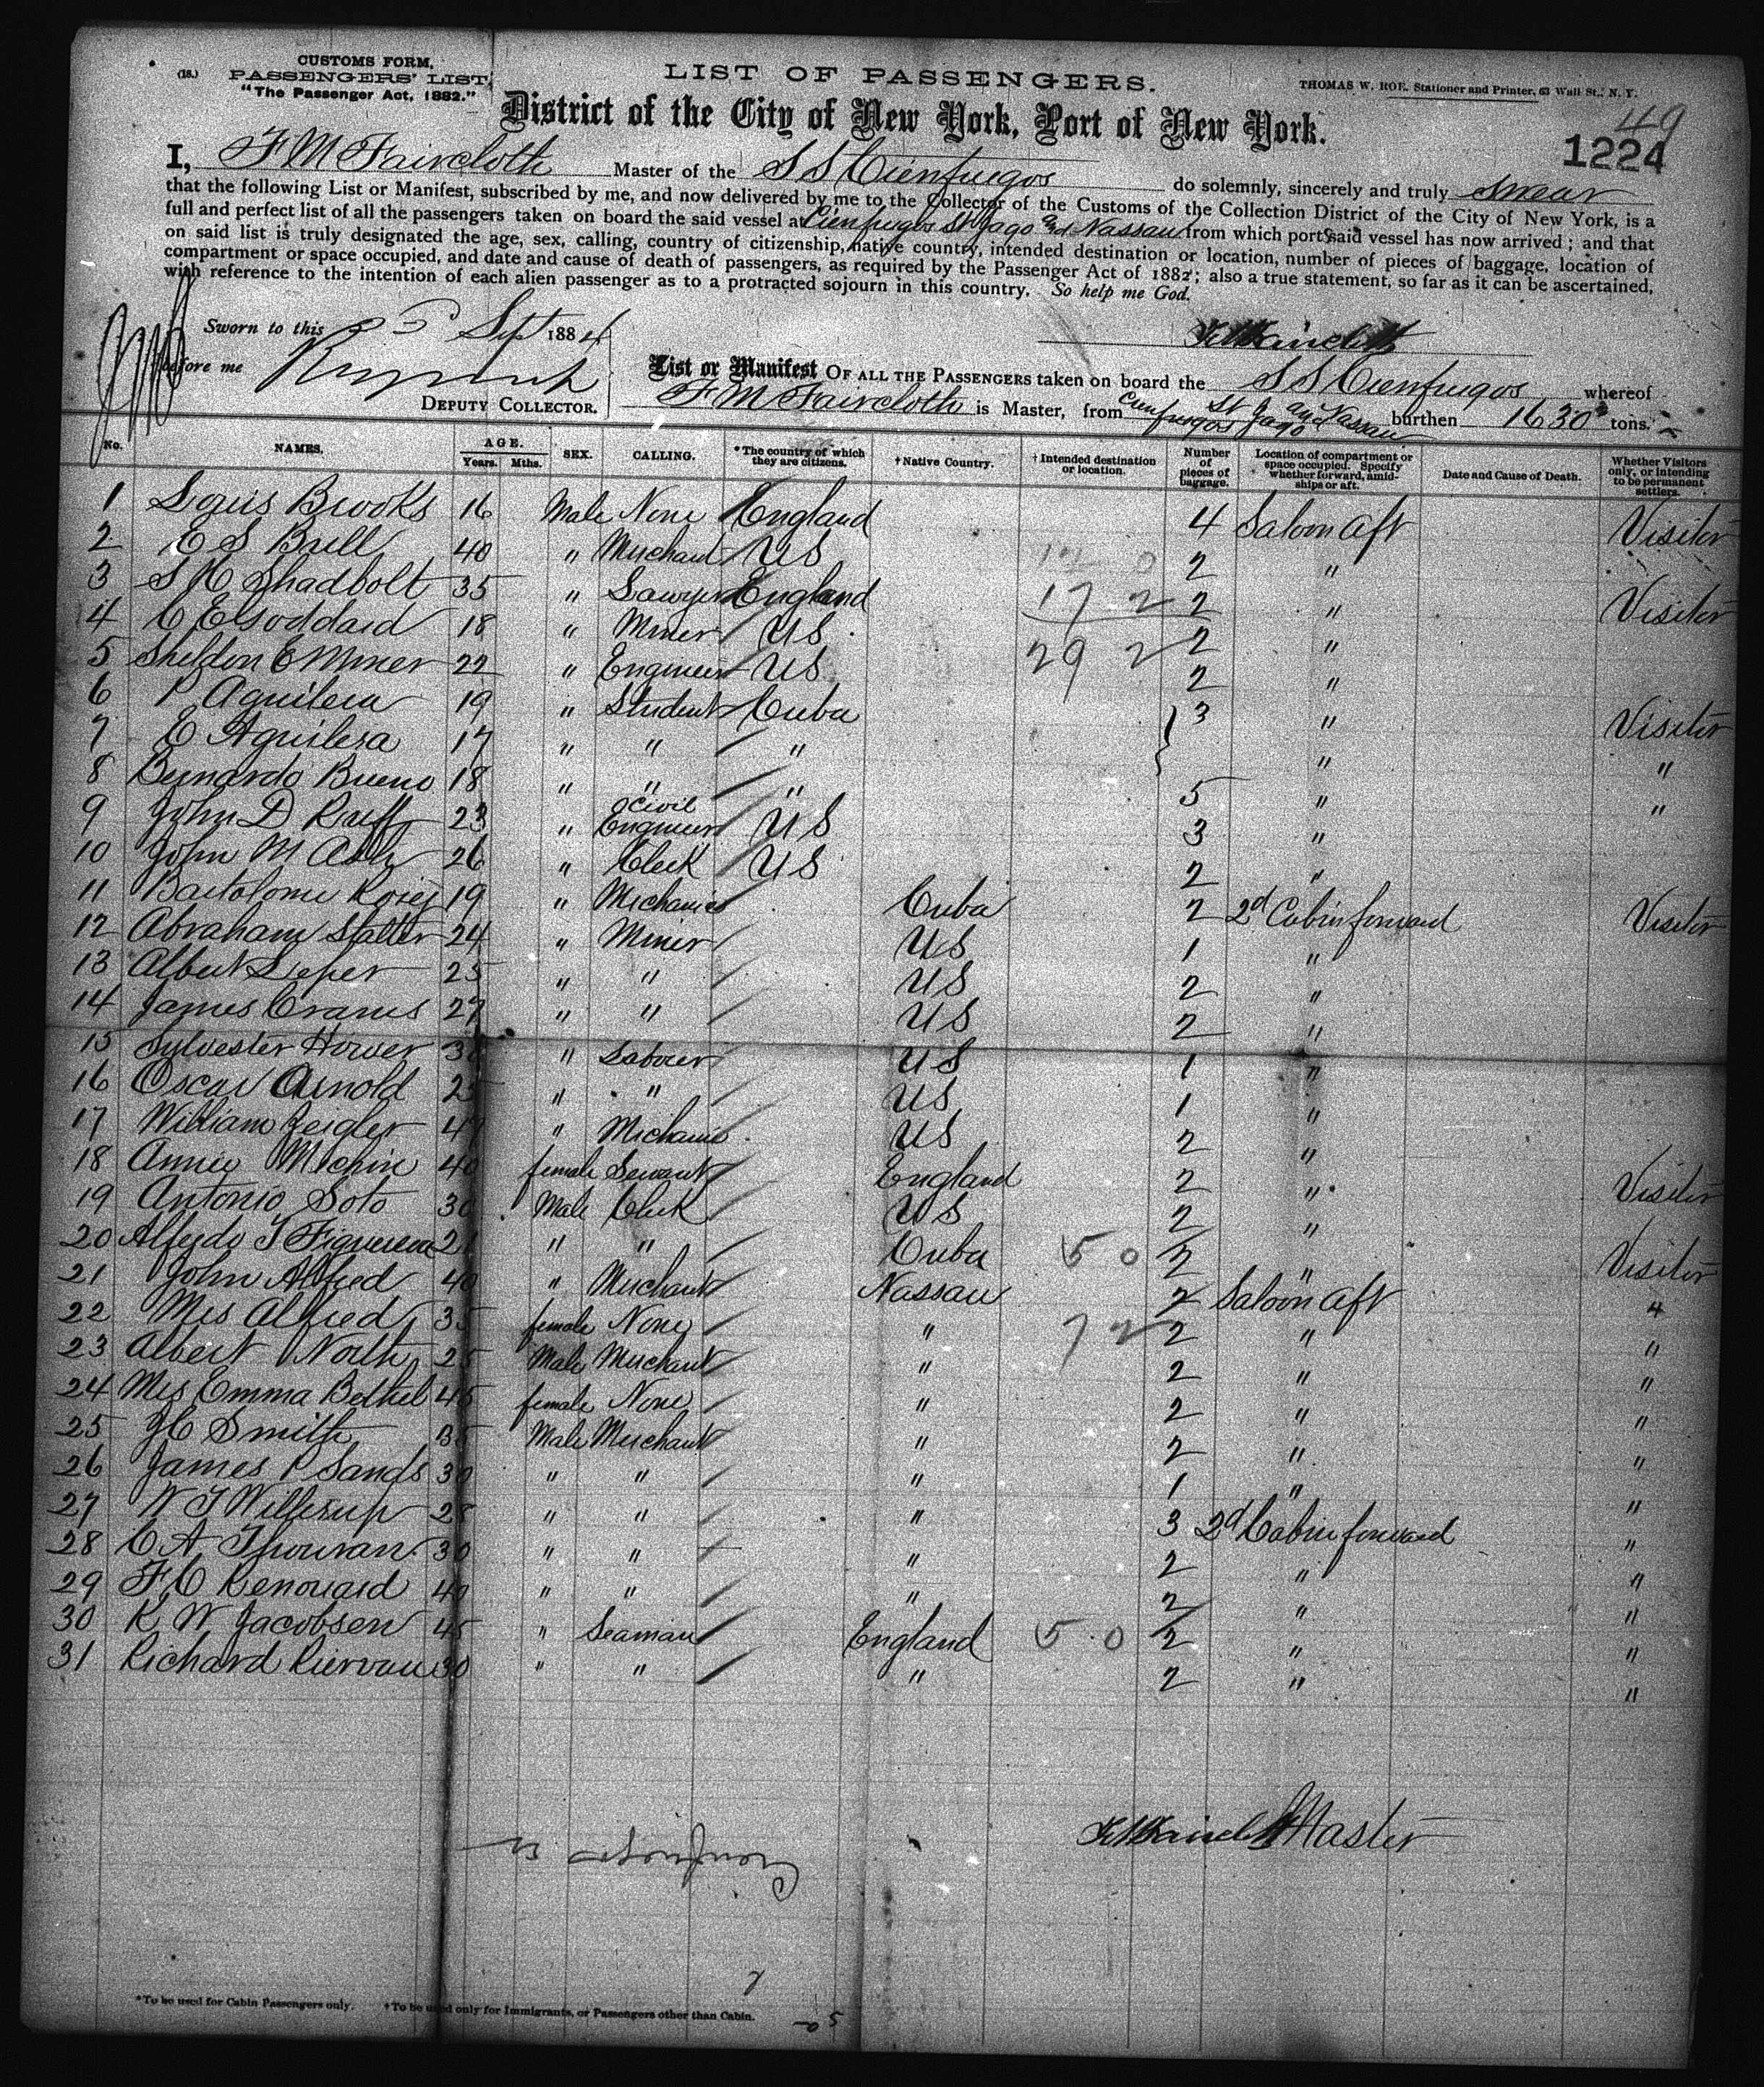 (18.) CUSTOMS FORM.
PASSENGERS' LIST,
"The Passenger Act, 1882."
LIST OF PASSENGERS.
THOMAS W. ROE, Stationer and Printer, 63 Wall St., N. Y.
District of the City of New York, Port of New York.
49
1224
I, F M Faircloth Master of the S S Cienfuegos do solemnly, sincerely and truly swear
that the following List or Manifest, subscribed by me, and now delivered by me to the Collector of the Customs of the Collection District of the City of New York, is a
full and perfect list of all the passengers taken on board the said vessel at Cienfuegos St Jago and Nassau from which port said vessel has now arrived; and that
on said list is truly designated the age, sex, calling, country of citizenship, native country, intended destination or location, number of pieces of baggage, location of
compartment or space occupied, and date and cause of death of passengers, as required by the Passenger Act of 1882; also a true statement, so far as it can be ascertained,
with reference to the intention of each alien passenger as to a protracted sojourn in this country. So help me God.
Sworn to this Sept 1884
before me
DEPUTY COLLECTOR.
F M Faircloth
List or Manifest OF ALL THE PASSENGERS taken on board the S S Cienfuegos whereof
F M Faircloth is Master, from Cienfuegos St Jago and Nassau burthen 1630 tons.
No. NAMES. AGE. Years. Mths. SEX. CALLING. *The country of which they are citizens. †Native Country. †Intended destination or location. Number of pieces of baggage. Location of compartment or space occupied. Specify whether forward, amidships or aft. Date and Cause of Death. Whether Visitors only, or intending to be permanent settlers.
1 Louis Brooks 16 Male None England 4 Saloon Aft Visitor
2 E S Bull 40 " Merchant US 2 "
3 S H Shadbolt 35 " Lawyer England 17 2 2 " Visitor
4 C E Goddard 18 " Miner US 2 "
5 Sheldon E Miner 22 " Engineer US 29 2 2 "
6 P Aguilera 19 " Student Cuba 3 " Visitor
7 E Aguilera 17 " " " " "
8 Bernardo Bueno 18 " " " 5 " "
9 John D Ruff 23 " Civil Engineer US 3 "
10 John M 26 " Clerk US 2 "
11 Bartolome 19 " Mechanic Cuba 2 2d Cabin forward Visitor
12 Abraham Statter 24 " Miner US 1 "
13 Albert Leper 25 " " US 2 "
14 James 27 " " US 2 "
15 Sylvester Hower " Laborer US 1 "
16 Oscar Arnold 25 " " US 1 "
17 William Zeigler 47 " Mechanic US 2 "
18 Annie 40 female Servant England 2 " Visitor
19 Antonio Soto 30 Male Clerk US 2 "
20 Alfredo J Figuereva 21 " " Cuba 5 0 2 " Visitor
21 John Alfred 40 " Merchant Nassau 2 Saloon Aft "
22 Mrs Alfred 35 female None " 7 2 2 " "
23 Albert North 25 Male Merchant " 2 " "
24 Mrs Emma Bethel 45 female None " 2 " "
25 Smith 35 Male Merchant " 2 " "
26 James P Sands 30 " " " 1 " "
27 W J 28 " " " 3 2d Cabin forward "
28 C A 30 " " " 2 " "
29 F C Renouard 40 " " " 2 " "
30 K W Jacobsen 45 " Seaman England 5 0 2 " "
31 Richard 30 " " " 2 " "
F M Faircloth Master
Cienfuegos
*To be used for Cabin Passengers only. †To be used only for Immigrants, or Passengers other than Cabin.